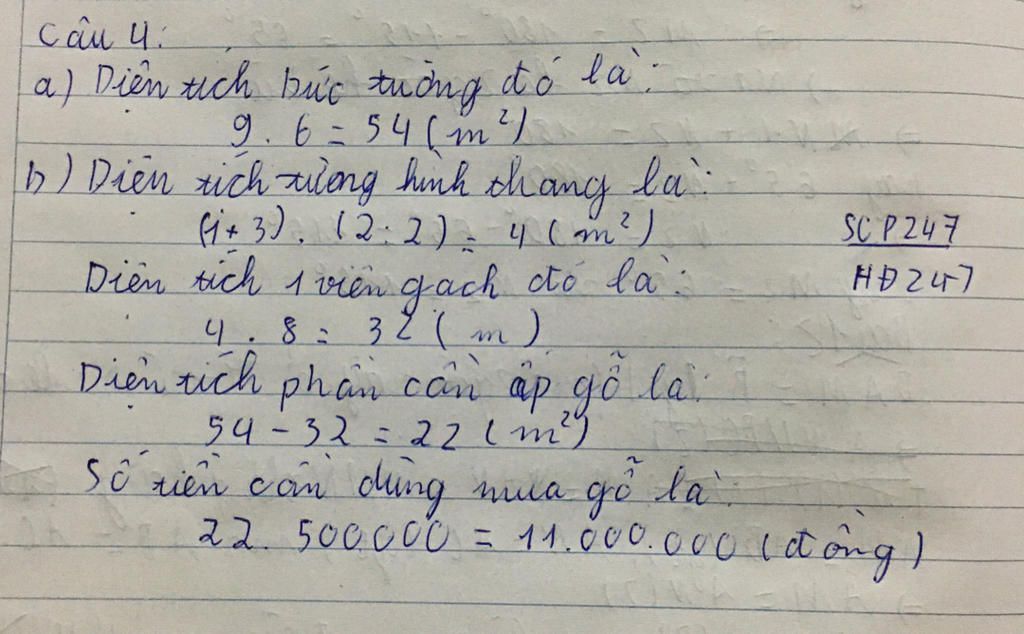 Câu 4:
a) Diện tích bức tường đó là:
9 . 6 = 54 (m²)
b) Diện tích tường hình thang là:
(1+3) . (2:2) = 4 (m²)
SCP247
HĐ247
Diện tích 1 viên gạch đó là:
4 . 8 = 32 (m)
Diện tích phần cần ốp gỗ là:
54 - 32 = 22 (m²)
Số tiền cần dùng mua gỗ là:
22. 500.000 = 11.000.000 (đồng)